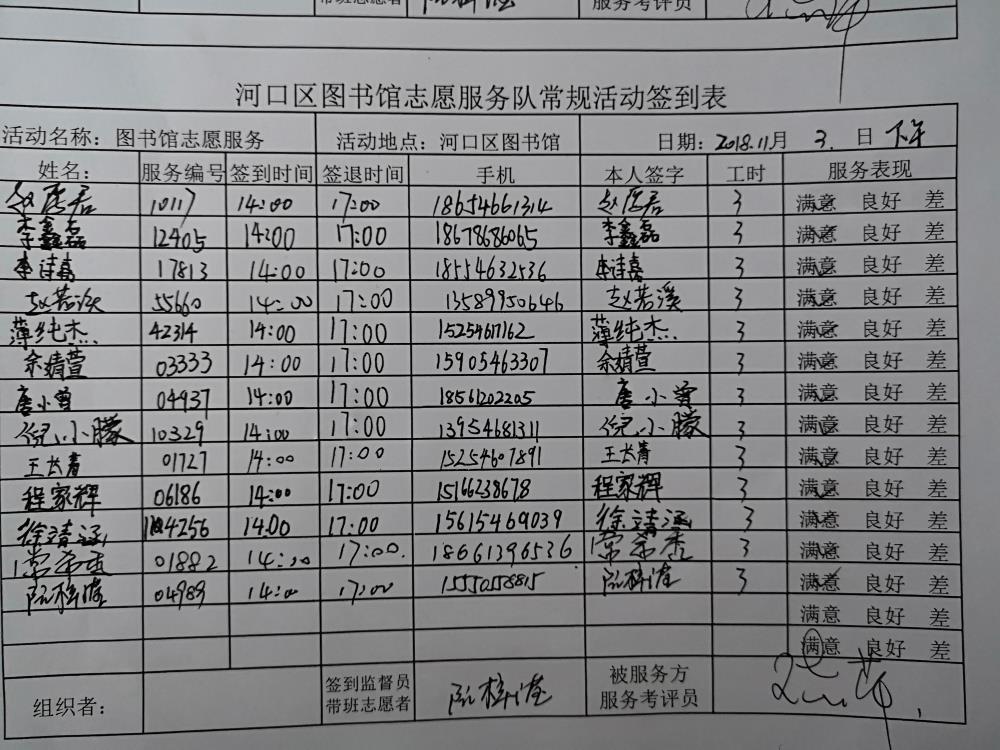 带班志愿者
服务考评员
河口区图书馆志愿服务队常规活动签到表
活动名称：图书馆志愿服务 活动地点：河口区图书馆 日期：2018.11月 3. 日 下午
姓名： 服务编号 签到时间 签退时间 手机 本人签字 工时 服务表现
10117 14:00 17:00 18654661314 3 满意 良好 差
李鑫磊 12405 14:00 17:00 18678686065 李鑫磊 3 满意 良好 差
李诗嘉 17813 14:00 17:00 18554632536 李诗嘉 3 满意 良好 差
赵若溪 55660 14:00 17:00 13589950646 赵若溪 3 满意 良好 差
薄纯杰 42314 14:00 17:00 15254617162 薄纯杰 3 满意 良好 差
余婧萱 03333 14:00 17:00 15905463307 余婧萱 3 满意 良好 差
唐小曾 04937 14:00 17:00 18561202205 唐小曾 3 满意 良好 差
倪小朦 10329 14:00 17:00 13954681311 倪小朦 3 满意 良好 差
王长青 01727 14:00 17:00 15254607891 王长青 3 满意 良好 差
程家辉 06186 14:00 17:00 15166238678 程家辉 3 满意 良好 差
徐靖涵 14:00 17:00 15615469039 徐靖涵 3 满意 良好 差
01882 14:00 17:00. 18661396536 3 满意 良好 差
04989 14:00 17:00 15550558815 3 满意 良好 差
满意 良好 差
满意 良好 差
组织者： 签到监督员 被服务方
带班志愿者 服务考评员